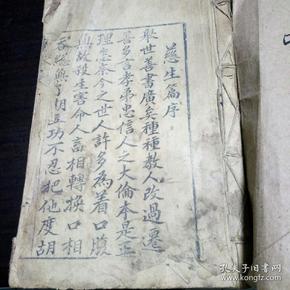 慈生篇序
取世善書廣矣種種教人改過遷
善多言孝弟忠信人之大倫本是正
理怎奈今之世人許多為着口腹
故殺生害命人畜相轉換口相
不忍把他度胡
孔夫子旧书网